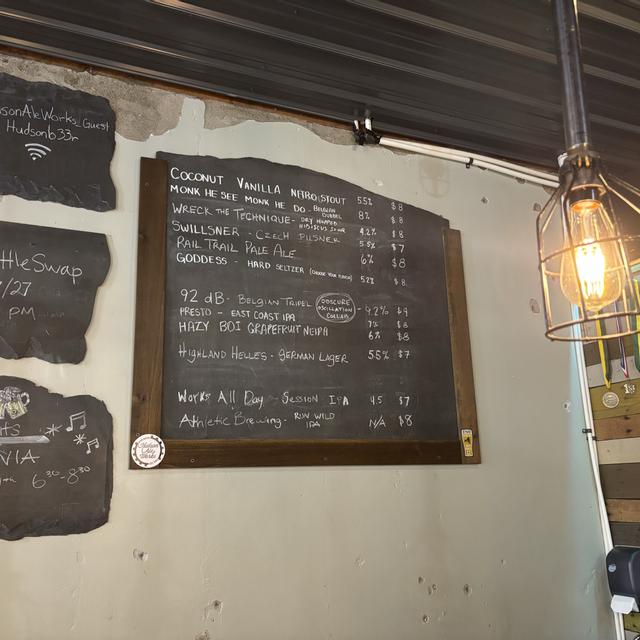 sonAleWorks_Guest
Hudsonb33r
ttleSwap
/27
PM
VIA
6:30-8:30
COCONUT VANILLA NITRO STOUT 5.5% $8
MONK HE SEE MONK HE DO - BELGIAN DUBBEL 8% $8
WRECK THE TECHNIQUE - DRY HOPPED HIBISCUS SOUR 4.2% $8
SWILLSNER - CZECH PILSNER 5.5% $7
RAIL TRAIL PALE ALE 6% $8
GODDESS - HARD SELTZER (CHOOSE YOUR PUNCH) 5.2% $8
92 dB - BELGIAN TRIPEL OBSCURE OSCILLATION COLLAB - 9.2% $9
PRESTO - EAST COAST IPA 7% $8
HAZY BOI GRAPEFRUIT NEIPA 6% $8
HIGHLAND HELLES - GERMAN LAGER 5.5% $7
Works All Day - Session IPA 4.5 $7
Athletic Brewing - RUN WILD IPA N/A $8
Hudson Ale Works